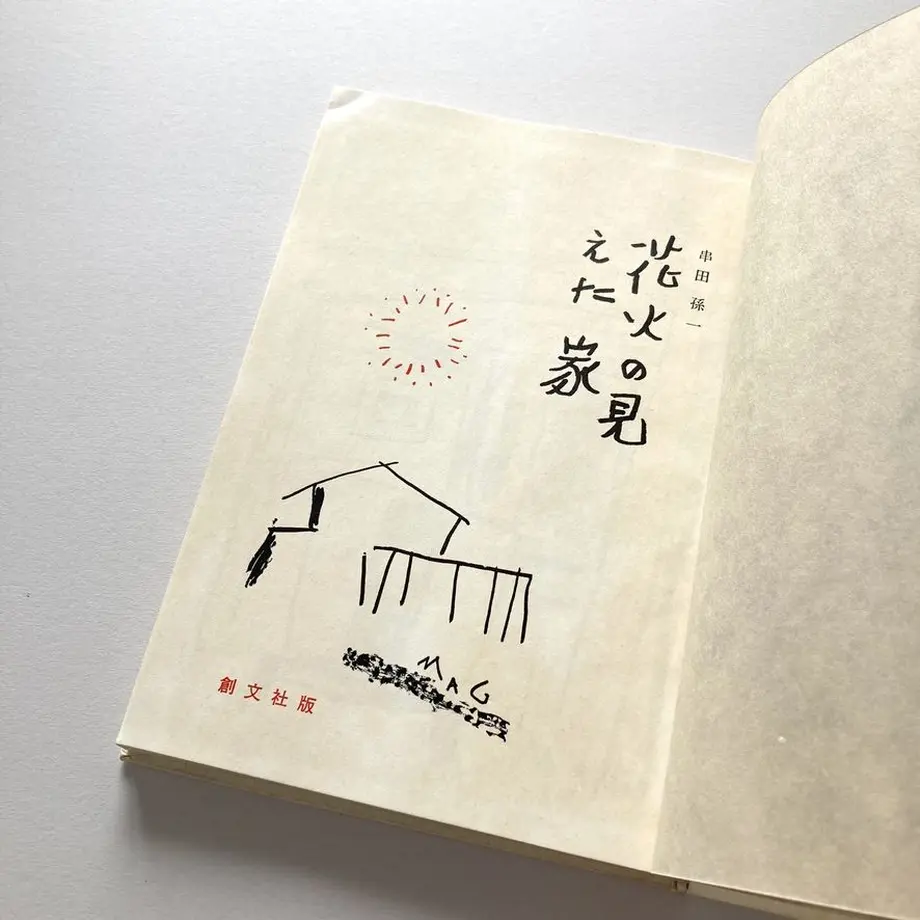 串田孫一
花火の見
えた家
MAG
創文社版